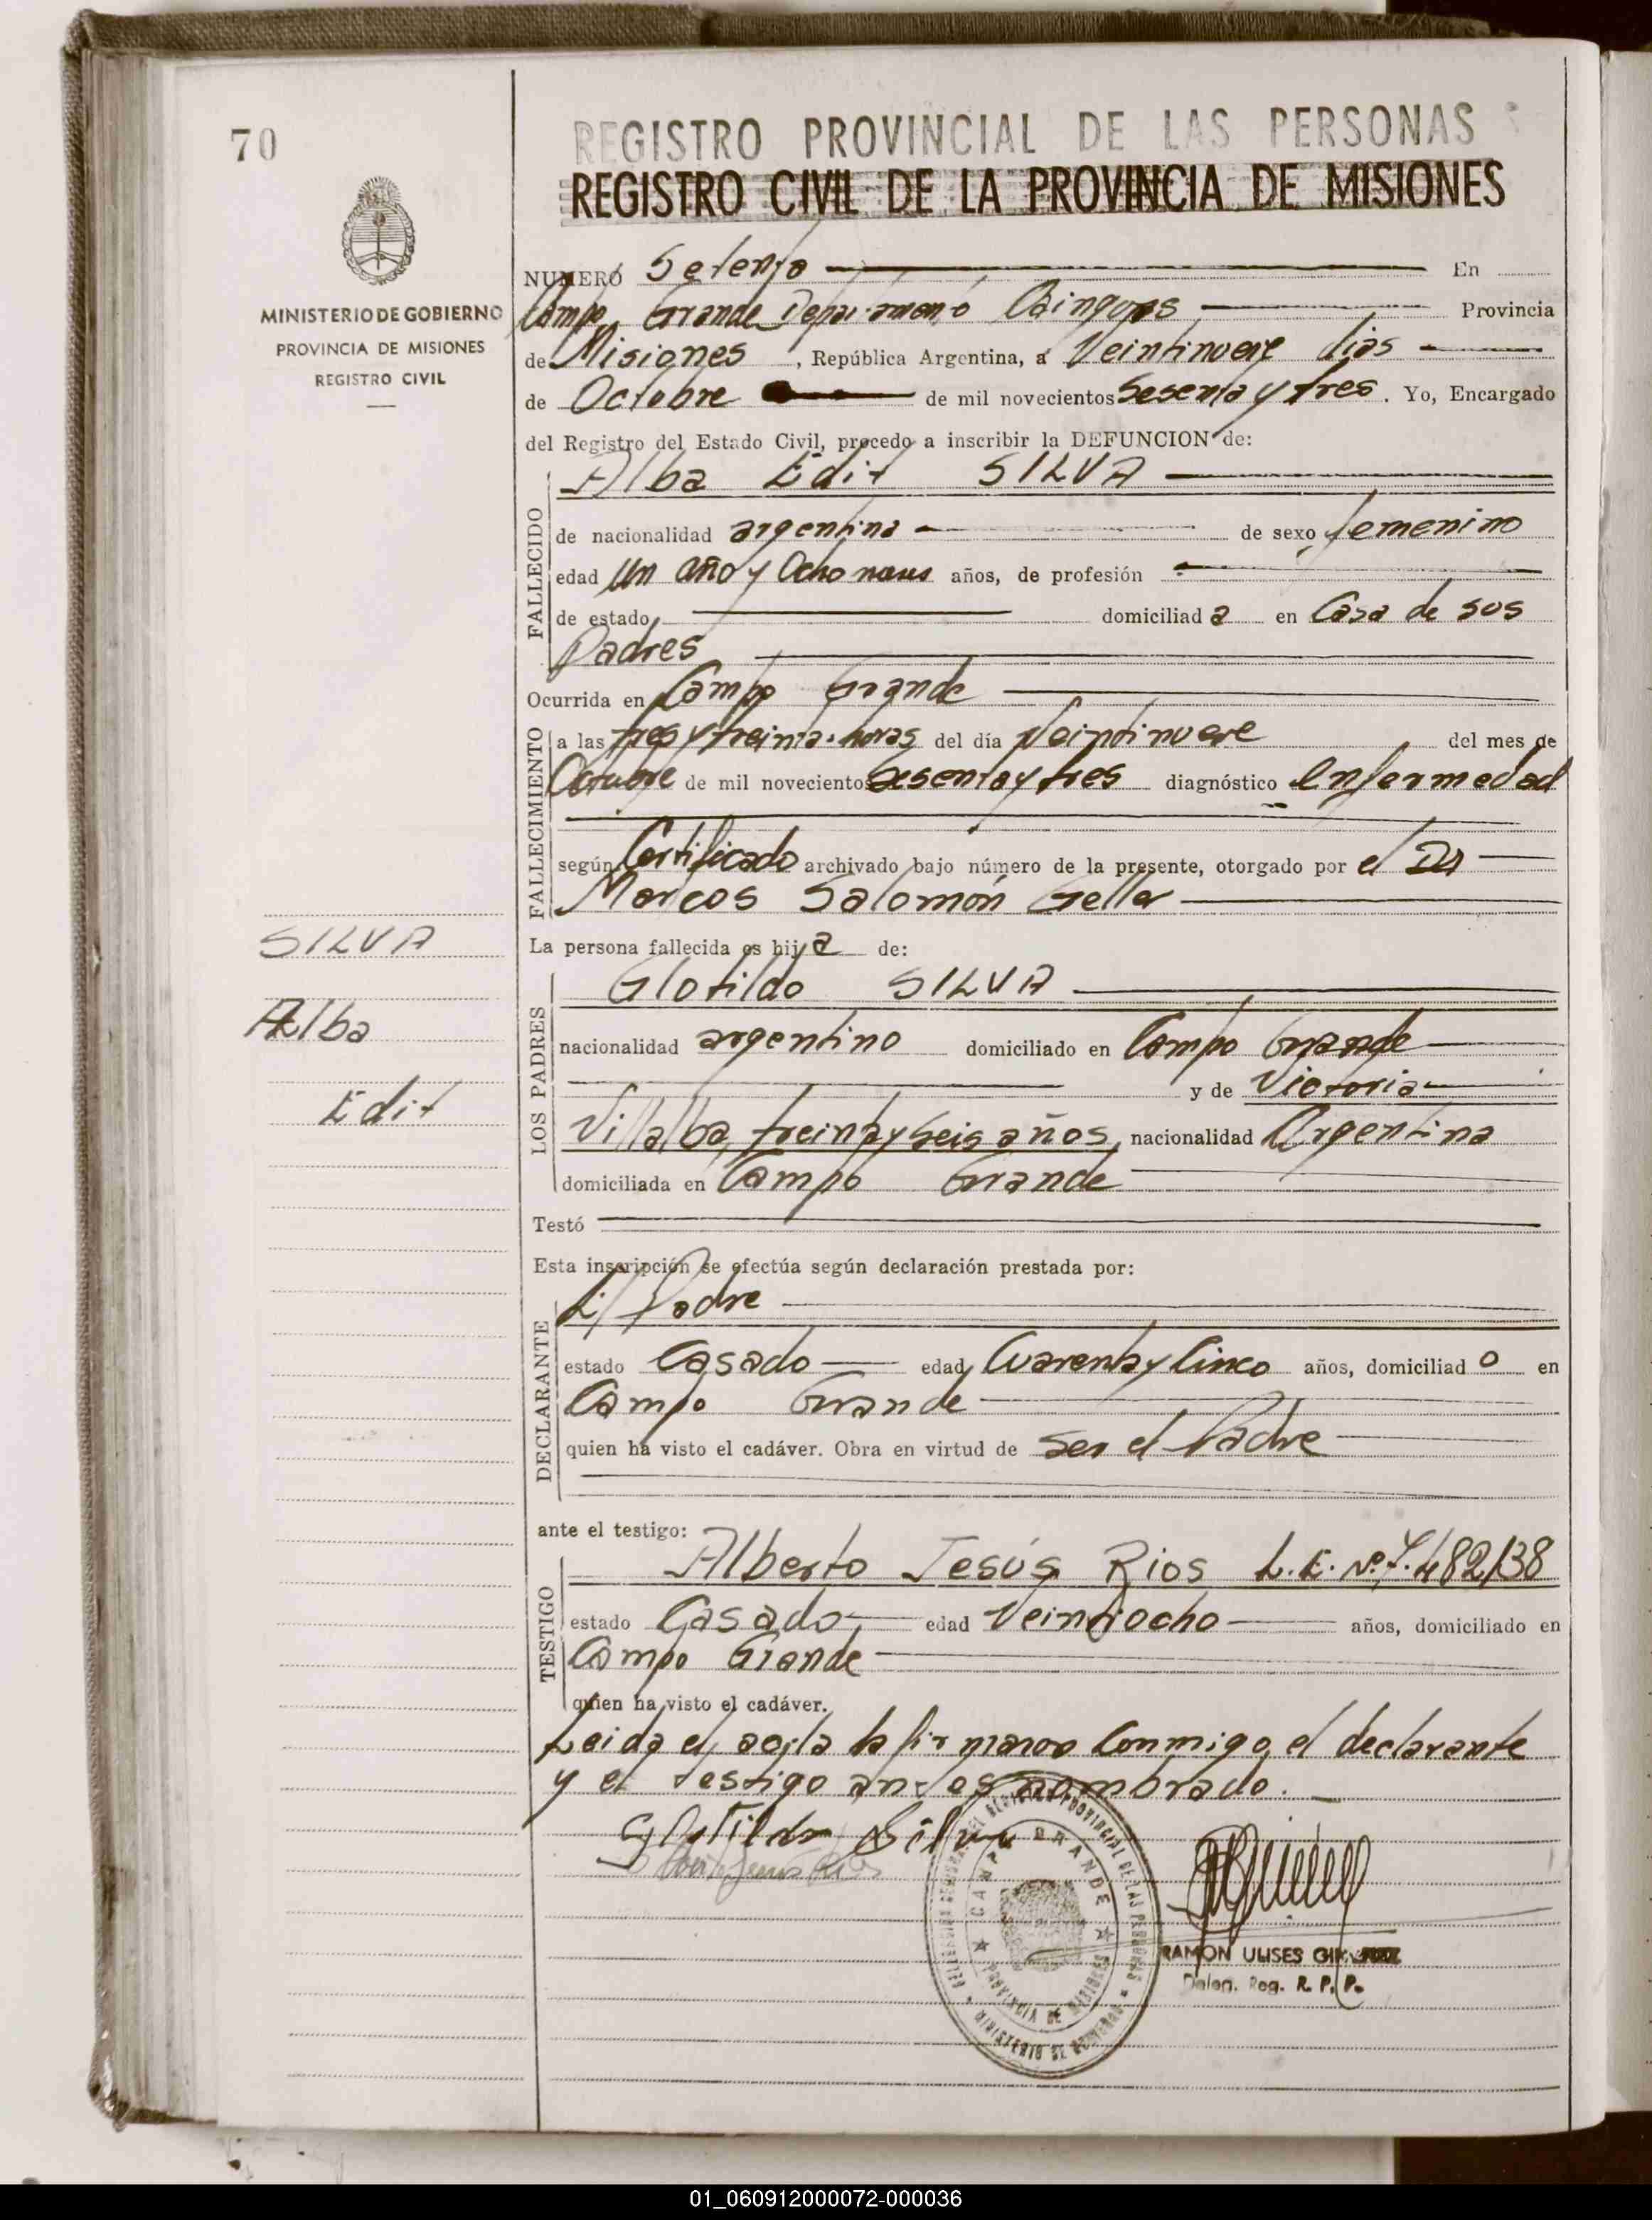 70
REGISTRO PROVINCIAL DE LAS PERSONAS
REGISTRO CIVIL DE LA PROVINCIA DE MISIONES
MINISTERIO DE GOBIERNO
PROVINCIA DE MISIONES
REGISTRO CIVIL
NUMERO Setenta En
Campo Grande Departamento Cainguas Provincia
de Misiones, República Argentina, a Veintinueve dias
de Octubre de mil novecientos Sesenta y tres. Yo, Encargado
del Registro del Estado Civil, procedo a inscribir la DEFUNCION de:
Alba Edit SILVA
FALLECIDO
de nacionalidad argentina de sexo femenino
edad Un año y Ocho meses años, de profesión
de estado domiciliad a en Casa de sus
Padres
Ocurrida en Campo Grande
FALLECIMIENTO
a las tres y treinta horas del día Veintinueve del mes de
Octubre de mil novecientos Sesenta y tres diagnóstico Enfermedad
según Certificado archivado bajo número de la presente, otorgado por el Dr
Marcos Salomón Geller
SILVA
Alba
Edit
La persona fallecida es hij a de:
Glotildo SILVA
LOS PADRES
nacionalidad argentino domiciliado en Campo Grande
y de Victoria
Villalba, treinta y seis años, nacionalidad Argentina
domiciliada en Campo Grande
Testó
Esta inscripción se efectúa según declaración prestada por:
El Padre
DECLARANTE
estado Casado edad Cuarenta y Cinco años, domiciliad o en
Campo Grande
quien ha visto el cadáver. Obra en virtud de Ser el Padre
ante el testigo:
Alberto Jesús Rios L.E. Nº 7.482138
TESTIGO
estado Casado edad Veintiocho años, domiciliado en
Campo Grande
quien ha visto el cadáver.
Leida el acta la firmaron Conmigo, el declarante
y el testigo antes nombrado.
Glotildo Silva
CAMPO GRANDE
PROVINCIA DE MISIONES
MINISTERIO DE GOBIERNO
RAMON ULISES
Deleg. Reg. R. P. P.
01_060912000072-000036